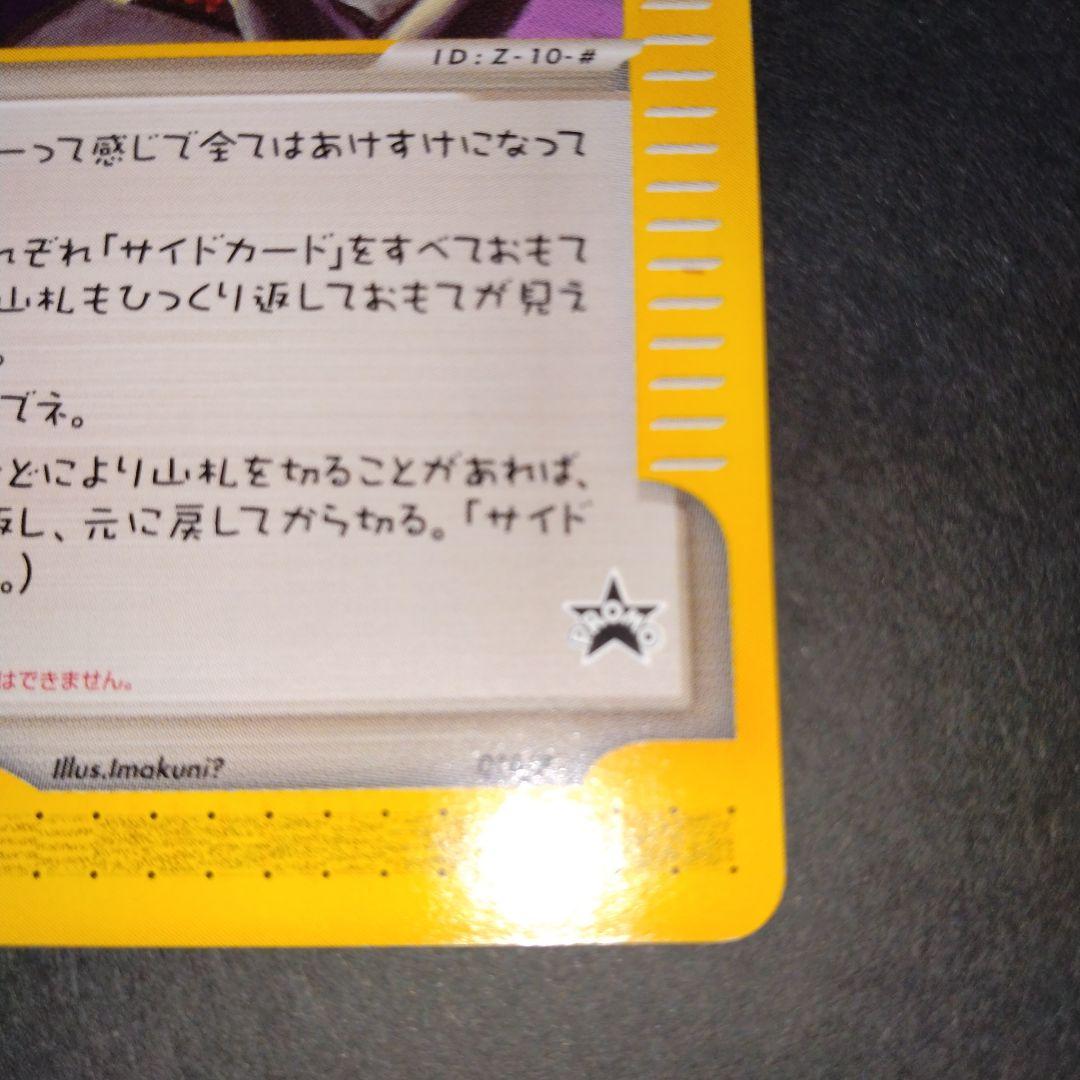 ID:Z-10-#
ーって感じで全てはあけすけになって
れぞれ「サイドカード」をすべておもて
山札もひっくり返しておもてが見え
。
でネ。
どにより山札を切ることがあれば、
返し、元に戻してから切る。「サイド
。)
PROMO
はできません。
Illus.Imakuni?